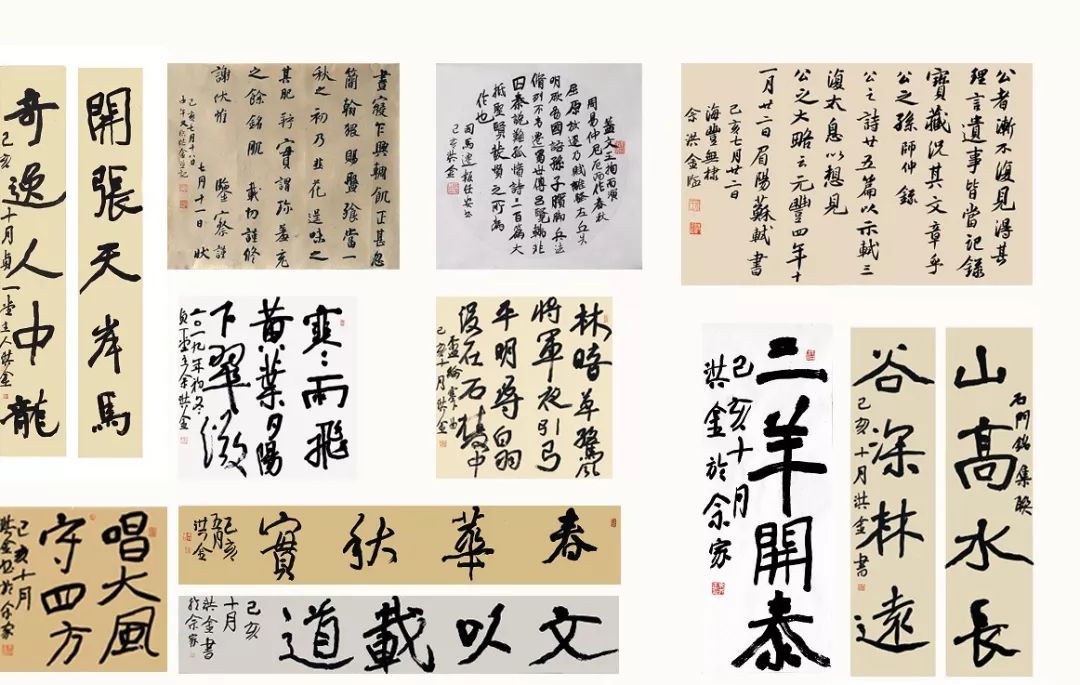 開張天岸馬
奇逸人中龍
己亥十月貞一堂主人洪金
晝寢乍興輖飢正甚忽
簡翰猥賜盤飧當一
秋之初乃韭花逞味之
其肥羜實謂珍羞充
之餘銘肌載切謹修
謝伏惟鑒察謹
狀
七月十一日
己亥七月十八日
蓋文王拘而演
周易仲尼厄而作春秋
屈原放逐乃賦離騷左丘失
明厥有國語孫子臏腳兵法
脩列不韋遷蜀世傳呂覽韓非
囚秦說難孤憤詩三百篇大
抵聖賢發憤之所為
作也
司馬遷報任安書
己亥洪金
公者漸不復見得其
理言遺事皆當記錄
寶藏況其文章乎
公之孫師仲錄
公之詩廿五篇以示軾三
復太息以想見
公之大略云元豐四年十
一月廿二日眉陽蘇軾書
己亥七月廿二日
海豐無棣
余洪金臨
寒雨飛
黄葉夕陽
下翠微
二〇一九年初冬
余洪金
林暗草驚風
將軍夜引弓
平明尋白羽
沒在石棱中
盧綸塞下曲
己亥十月洪金
三羊開泰
己亥十月
洪金於余家
山高水長
石門銘集聯
谷深林遠
己亥十月洪金書
唱大風
守四方
己亥十月
洪金書於余家
春華秋實
己亥
五月
洪金
文以載道
己亥
十月
洪金書
於余家